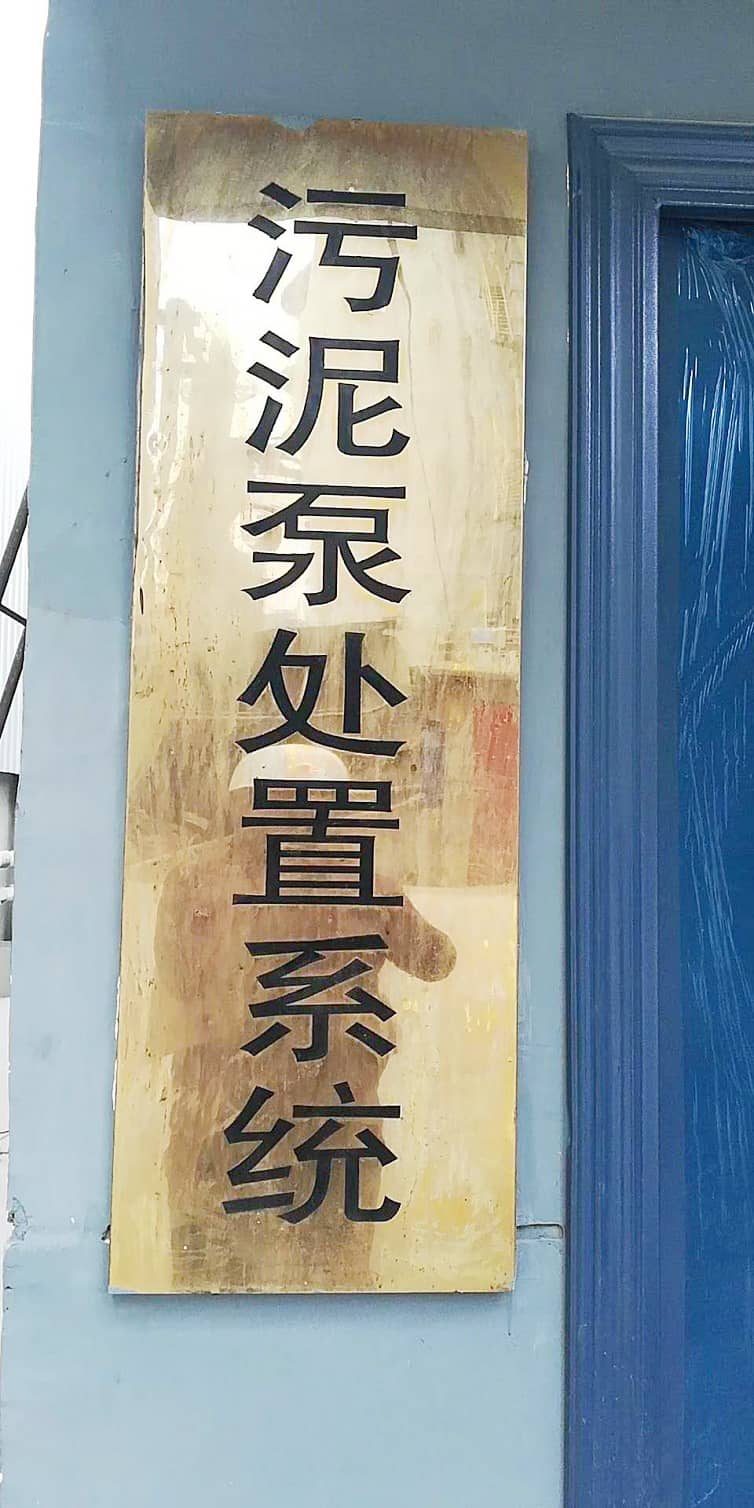 污泥泵处置系统